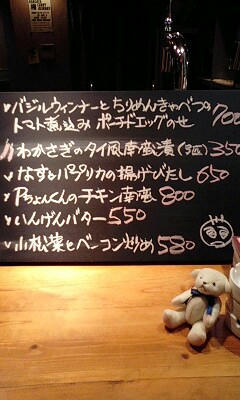 バジルウィンナーとちりめんきゃべつの
トマト煮込み ポーチドエッグのせ 700
わかさぎのタイ風南蛮漬(3匹) 350
なすとパプリカの揚げびたし 650
Pちょんくんのチキン南蛮 800
いんげんバター 550
小松菜とベーコン炒め 580